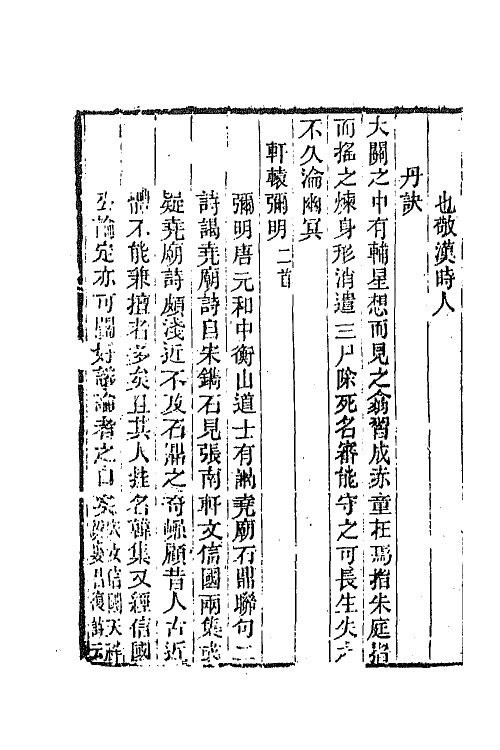 也敬漢時人
丹訣
大關之中有輔星想而見之翕習成赤童在焉指朱庭指
而搖之煉身形消遣三尸除死名審能守之可長生失之
不久淪幽冥
軒轅彌明二首
彌明唐元和中衡山道士有謁堯廟石鼎聯句二
詩謁堯廟詩自宋鐫石見張南軒文信國兩集或
疑堯廟詩頗淺近不及石鼎之奇崛顧昔人古近
體不能兼擅者多矣且其人姓名韓集又經信國
論定亦可關好議論者之口矣
信國天祥
復詩云